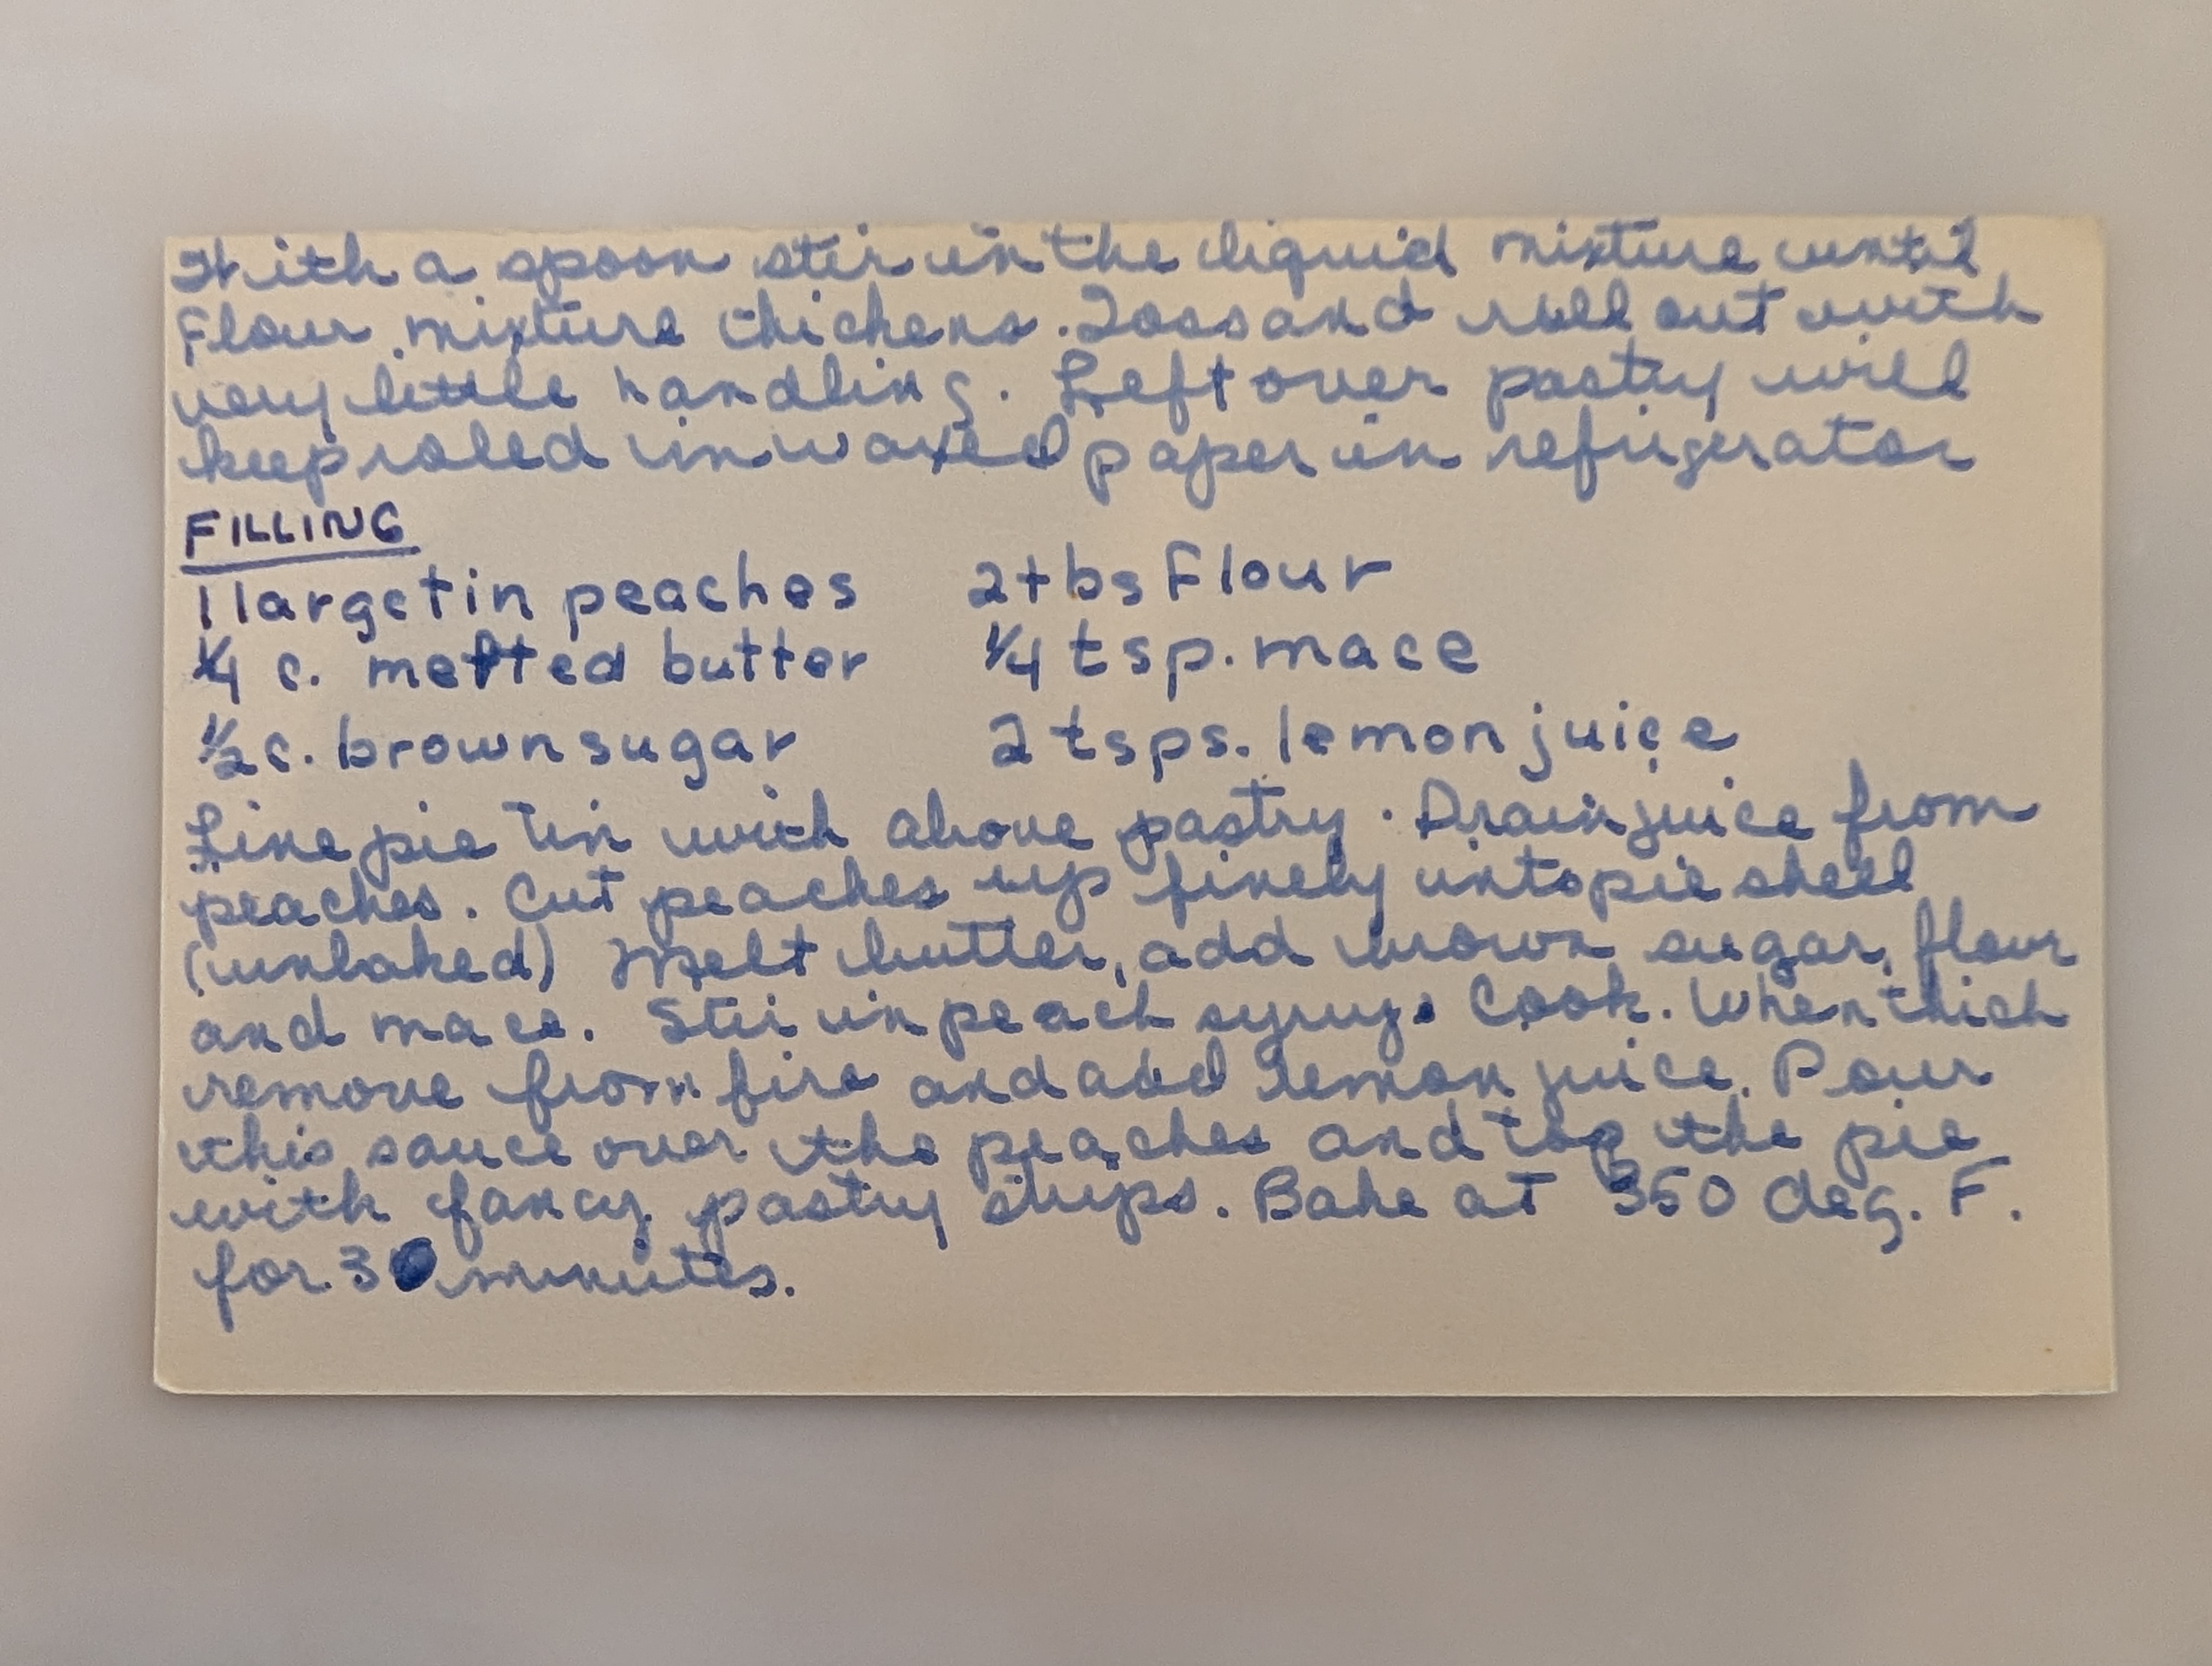 With a spoon stir in the liquid mixture until
Flour mixture thickens. Toss and roll out with
very little handling. Left over pastry will
keep roled in waxed paper in refrigerator
FILLING
1 large tin peaches 2 tbs Flour
1/4 c. melted butter 1/4 tsp. mace
1/2 c. brown sugar 2 tsps. lemon juice
Line pie tin with above pastry. Drain juice from
peaches. Cut peaches up finely into pie shell
(unbaked) Melt butter, add brown sugar, flour
and mace. Stir in peach syrup. Cook. When thick
remove from fire and add lemon juice. Pour
this sauce over the peaches and top the pie
with fancy pastry strips. Bake at 350 deg. F.
for 30 minutes.